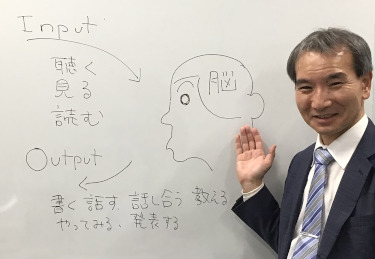 Input
聴く
見る
読む
脳
Output
書く 話す 話し合う 教える
やってみる、発表する